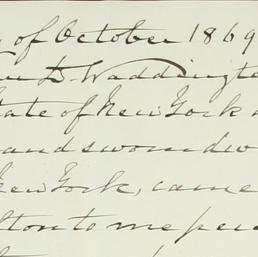 of October 1869
D. Waddingto
State of New York
and sworn dw
New York, came
lton to me per